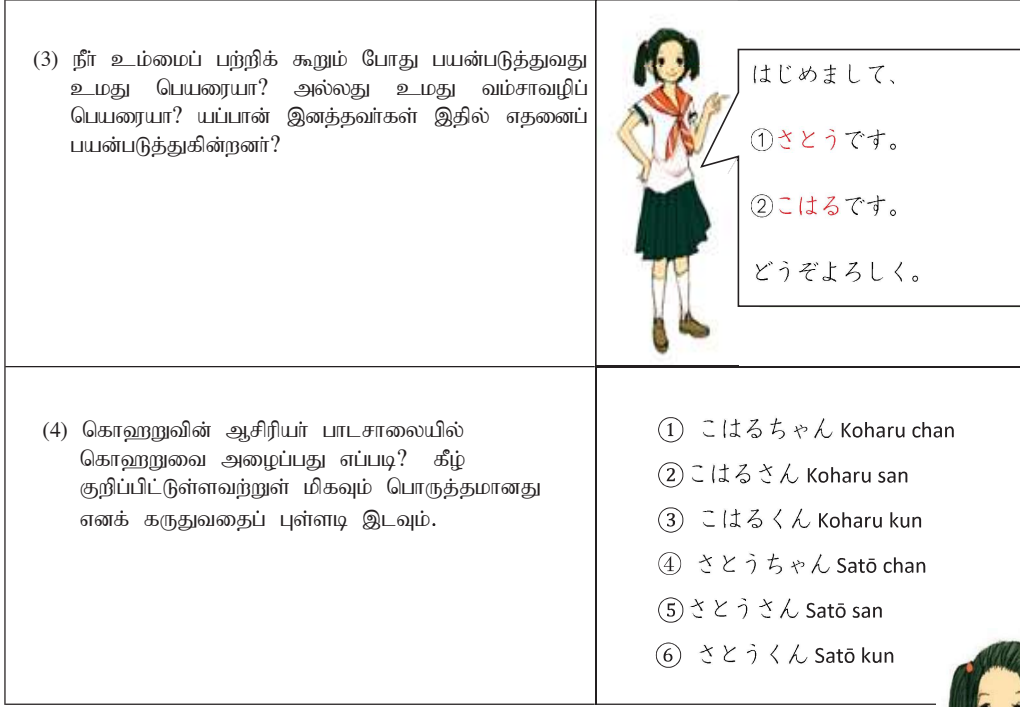 (3) நீர் உம்மைப் பற்றிக் கூறும் போது பயன்படுத்துவது
உமது பெயரையா? அல்லது உமது வம்சாவழிப்
பெயரையா? யப்பான் இனத்தவர்கள் இதில் எதனைப்
பயன்படுத்துகின்றனர்?
はじめまして、
①さとうです。
②こはるです。
どうぞよろしく。
(4) கொஹறுவின் ஆசிரியர் பாடசாலையில்
கொஹறுவை அழைப்பது எப்படி? கீழ்
குறிப்பிட்டுள்ளவற்றுள் மிகவும் பொருத்தமானது
எனக் கருதுவதைப் புள்ளடி இடவும்.
① こはるちゃん Koharu chan
②こはるさん Koharu san
③ こはるくん Koharu kun
④ さとうちゃん Satō chan
⑤さとうさん Satō san
⑥ さとうくん Satō kun